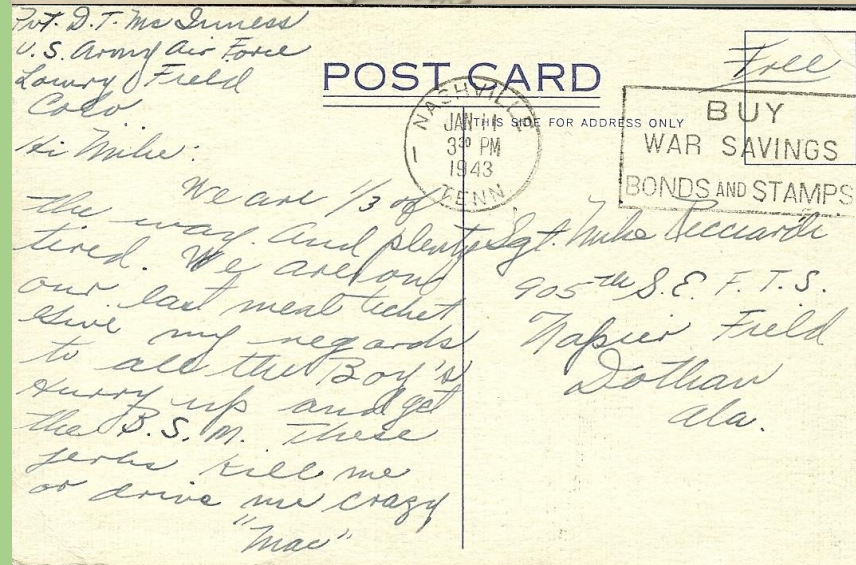 Pvt. D. T. Mc Inness
U.S. Army Air Force
Lowry Field
Colo
POST CARD
THIS SIDE FOR ADDRESS ONLY
Free
NASHVILLE
JAN 11
3 30 PM
1943
TENN.
BUY
WAR SAVINGS
BONDS AND STAMPS
Hi Mike:
We are 1/3 of
the way. And plenty
tired. We are on
our last meal ticket
Give my regards
to all the Boy's
Hurry up and get
the B.S.M. These
jerks kill me
or drive me crazy
"Mac"
Sgt. Mike Ricciardi
905th S.E. F.T.S.
Napier Field
Dothan
Ala.